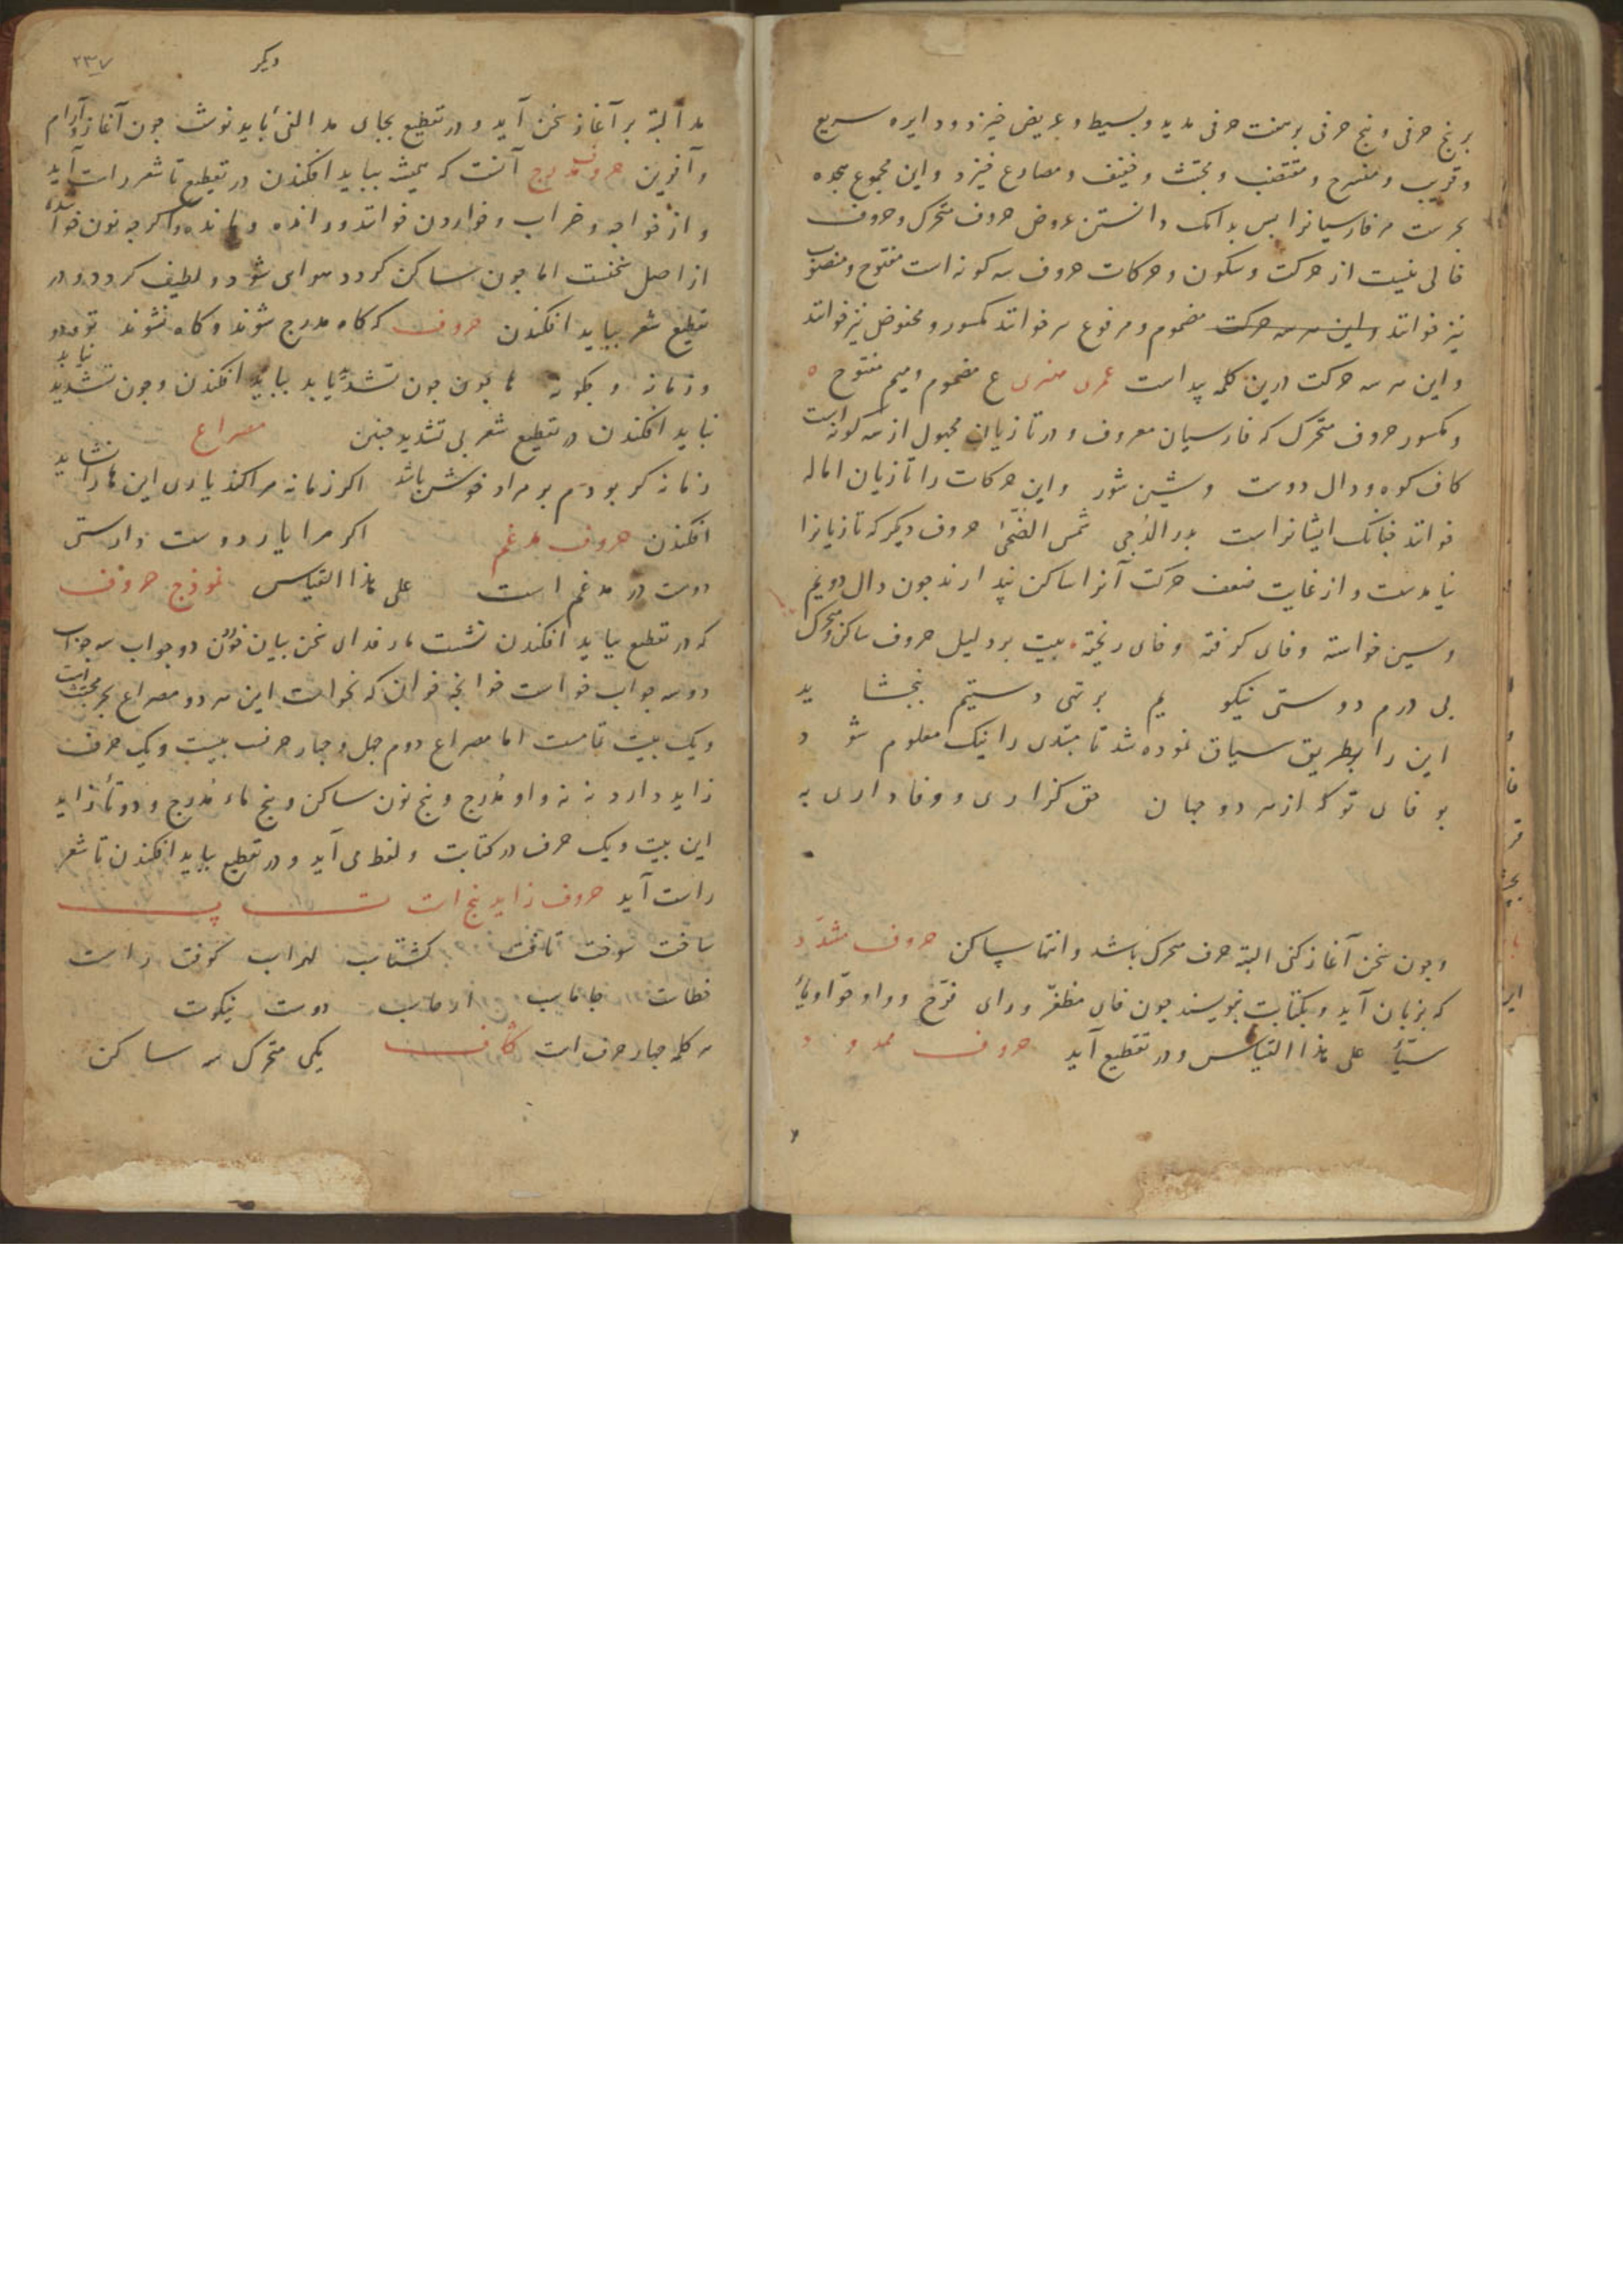 بر پنج حرفی و پنج حرفی بر هفت حرفی مدید و بسیط و عریض خیزد و دایره سریع
و قریب و منسرح و مقتضب و مجتث و خفیف و مضارع خیزد و این مجموع هجده
بحرست مر فارسیانرا بس بدانک دانستن عروض حروف متحرک و حروف
خالی نیست از حرکت و سکون و حرکات حروف سه کونه است مفتوح و منصوب
نیز خوانند و این هر سه حرکت مضموم و مرفوع هر خوانند مکسور و مخفوض نیز خوانند
و این هر سه حرکت درین کلمه پیداست عمری ع مضموم و میم مفتوح
و مکسور حروف متحرک که فارسیان معروف و در تازیان مجهول از سه کونه است
کاف کوه و دال دوست و شین شور و این حرکات را تازیان اماله
خوانند جنانک ایشانراست بدر الدجی شمس الضحی حروف دیکر که تازیانرا
نیامدست و از غایت ضعف حرکت آنرا ساکن پندارند جون دال دویم
و سین خواسته و فای کرفته و فای ریخته بیت بر دلیل حروف ساکن و متحرک
بی درم دوستی نیکو یم بر تهی دستیم ببخشا ید
این را بطریق سیاق نموده شد تا مبتدی را نیک معلوم شو د
بو فای تو که از هر دو جهان حق کزاری و وفاداری به
و جون سخن آغاز کنی البته حرف متحرک باشد و انتها ساکن حروف مشدّد
که بزبان آید و بکتابت ننویسند جون فای مظفّر و رای فرّخ و واو
علی هذا القیاس و در تقطیع آید حروف ممدود
دیکر
۲۳۷
مد البته بر آغاز سخن آید و در تقطیع بجای مد الفی باید نوشت جون آغاز و آرام
و آفرین حروف مدرج آنست که همیشه بباید افکندن در تقطیع تا شعر راست آید
و از خواجه و خراب و خواردن خوانند و رانده و مانده و اکرجه نون
از اصل سخنست اما جون ساکن کردد هوای شود و لطیف کردد و در
تقطیع شعر بباید افکندن حروف که کاه مدرج شوند و کاه نشوند تو و دو
و زمانه و جکونه ها جون تشدید یابد بباید افکندن و جون تشدید نیابد
نباید افکندن در تقطیع شعر بی تشدید جنین مصراع
زمانه کر بودم بر مراد خوش باشد اکر زمانه مرا کند یاری این ها را نشاید
افکندن حروف مدغم اکر مرا یار دوست دارستی
دوست در مدغم است علی هذا القیاس نموذج حروف
که در تقطیع بباید افکندن نشست
دو سه جواب خواست خوانجه خوان که نخواست این هر دو مصراع بحر مجتث است
و یک بیت تامست اما مصراع دوم جهل و جهار حرف بیست و یک حرف
زاید دارد نه نه واو مُدرج و پنج نون ساکن و پنج هاء مُدرج و دو تاء زاید
این بیست و یک حرف در کتابت و لفظ می آید و در تقطیع بباید افکندن تا شعر
راست آید حروف زاید پنج است ت پ
ساخت سوخت تاخت کشتاسب لهراسب کوفت راست
دوست نیکوست
هر کلمه جهار حرف است کاف یکی متحرک سه ساکن